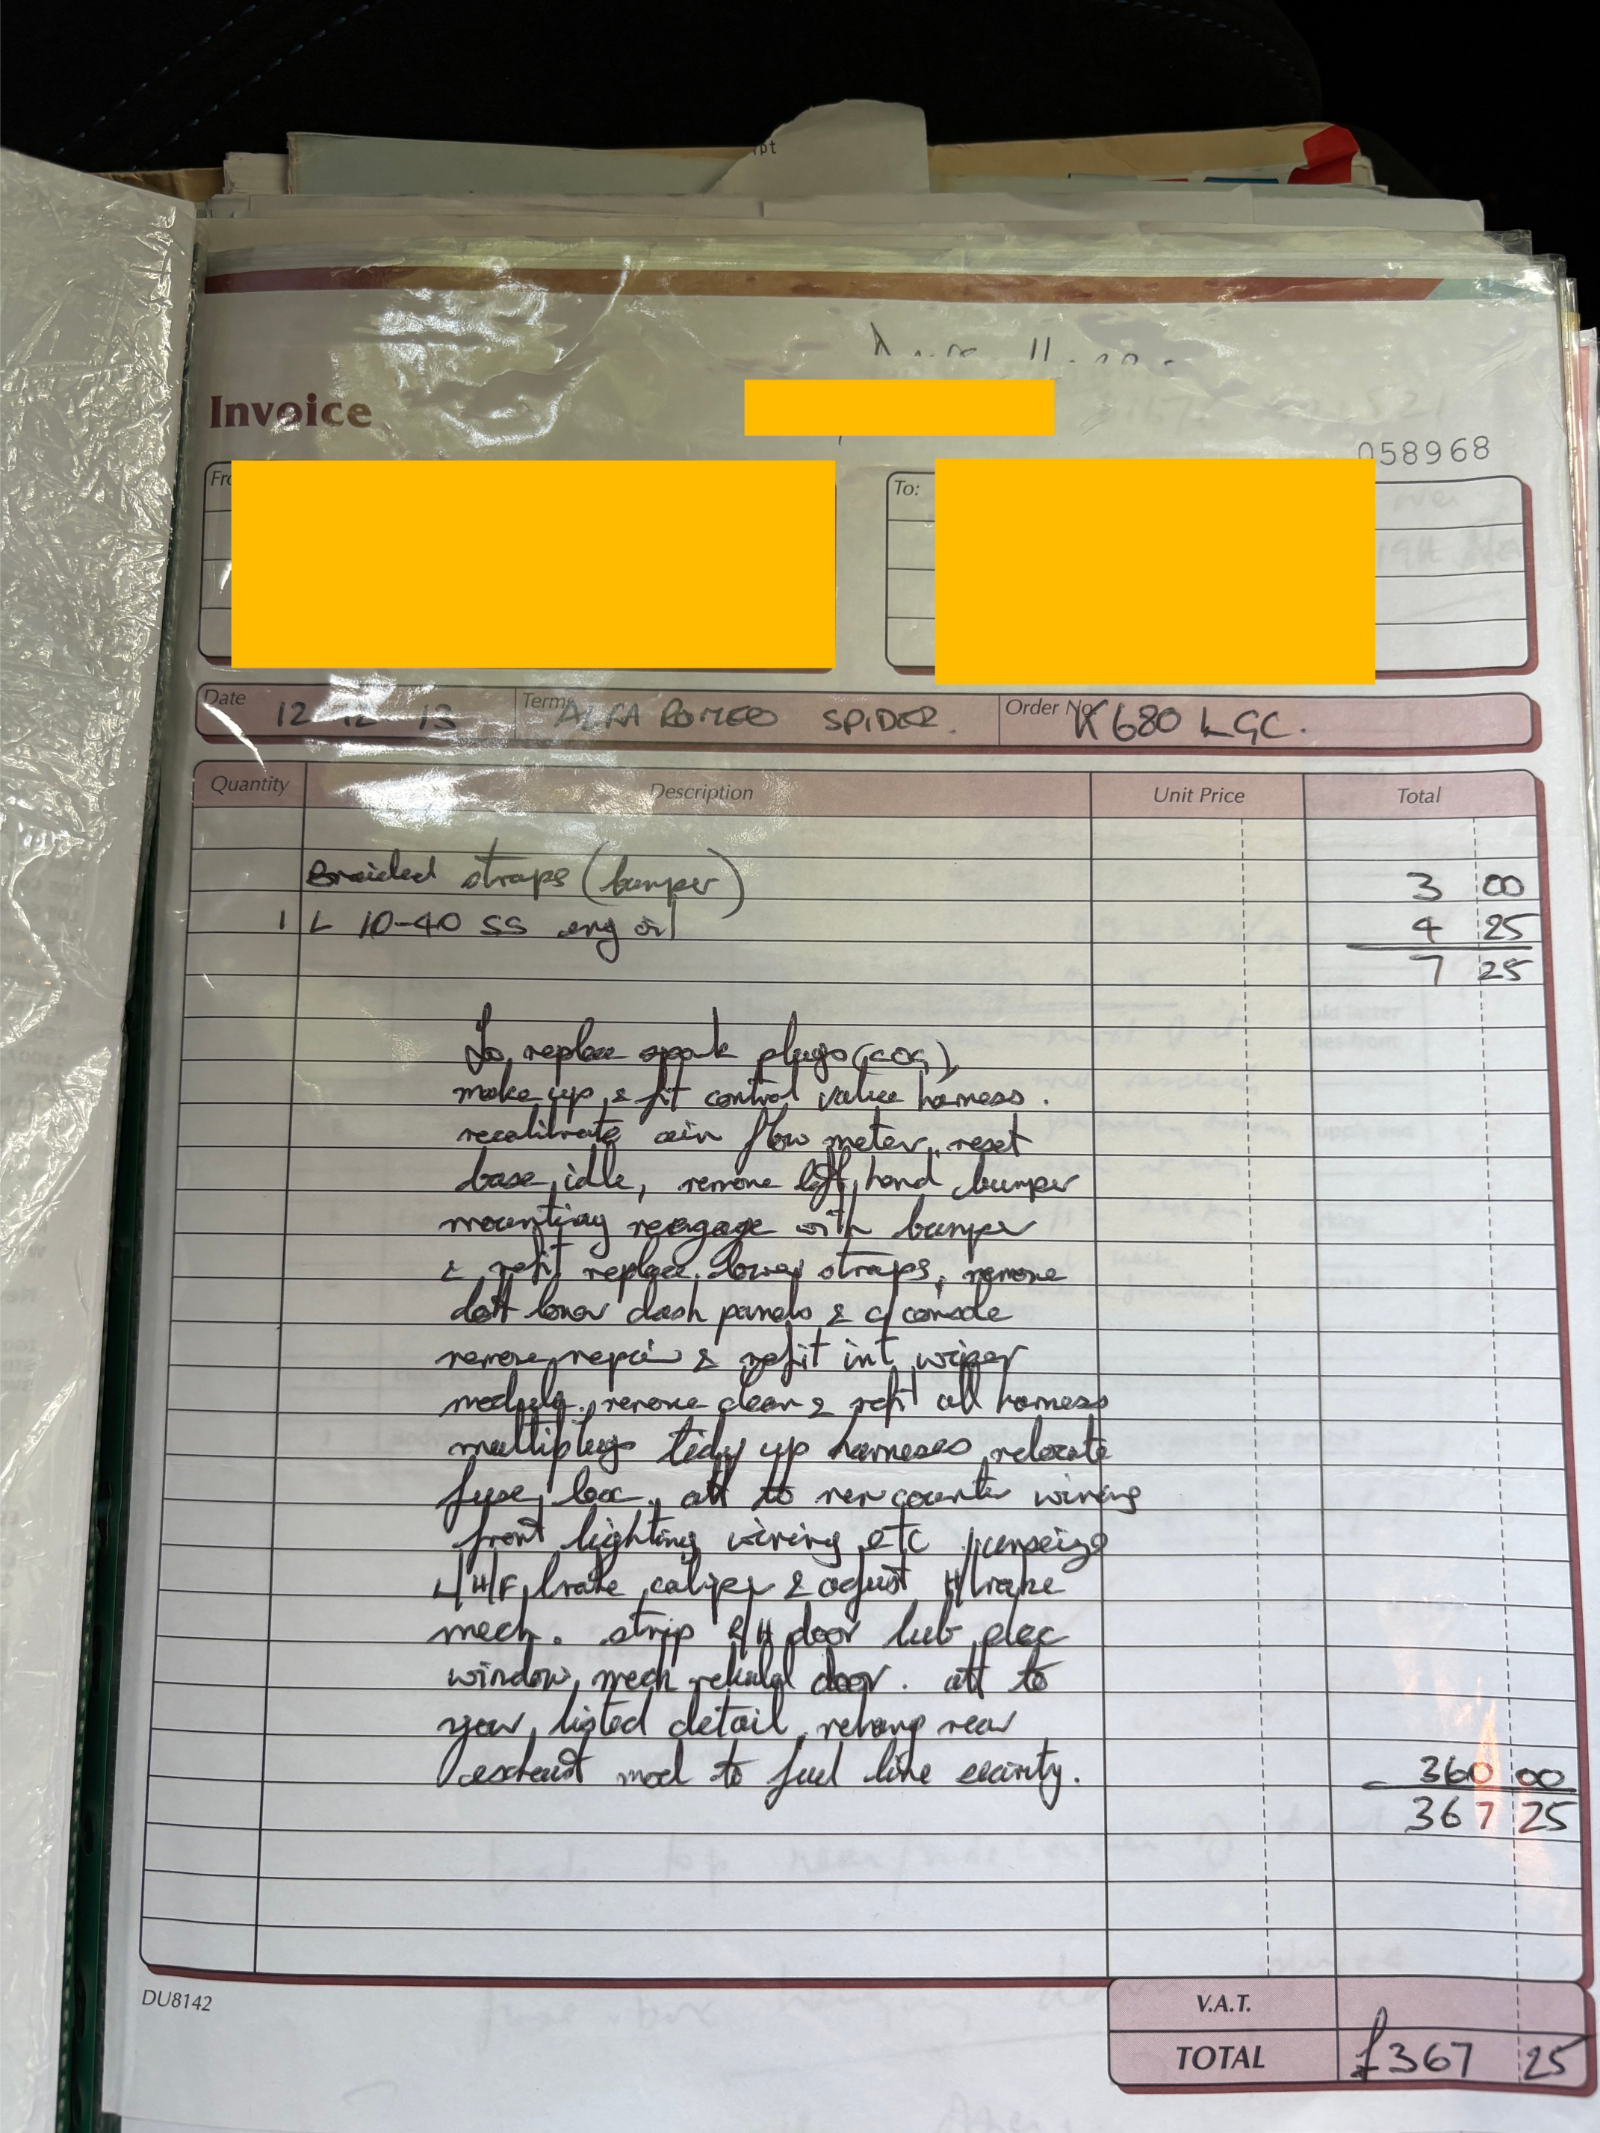 Invoice
058968
To:
Date 12 12 13 Terms ALFA ROMEO SPIDER. Order No K680 LGC.
Quantity Description Unit Price Total
Braided straps (bumper) 3 00
1 L 10-40 SS eng oil 4 25
7 25
To replace spark plugs
make up & fit control valve harness.
recalibrate air flow meter, reset
base idle, remove left hand bumper
mounting reengage with bumper
& refit replace lower straps, remove
lower dash panels & c/console
remove repair & refit int wiper
module. remove clean & refit all harness
multiplugs tidy up harnesses relocate
fuse box. att to wiring
front lighting wiring etc unseize
L/H/F brake caliper & adjust H/brake
mech. strip R/H door lub elec
window mech rebuild door. att to
your listed detail, rehang rear
exhaust mod to fuel line security. 360 00
367 25
DU8142
V.A.T.
TOTAL £367 25